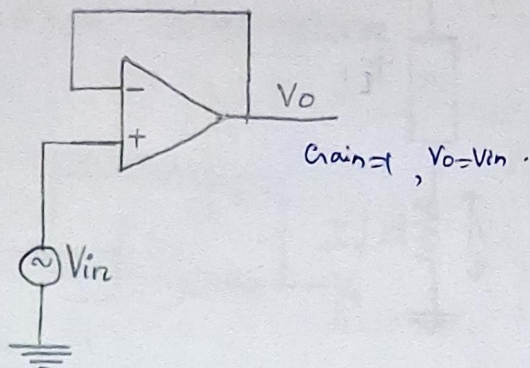 −
Vo
+
Gain=1, Vo=Vin.
Vin